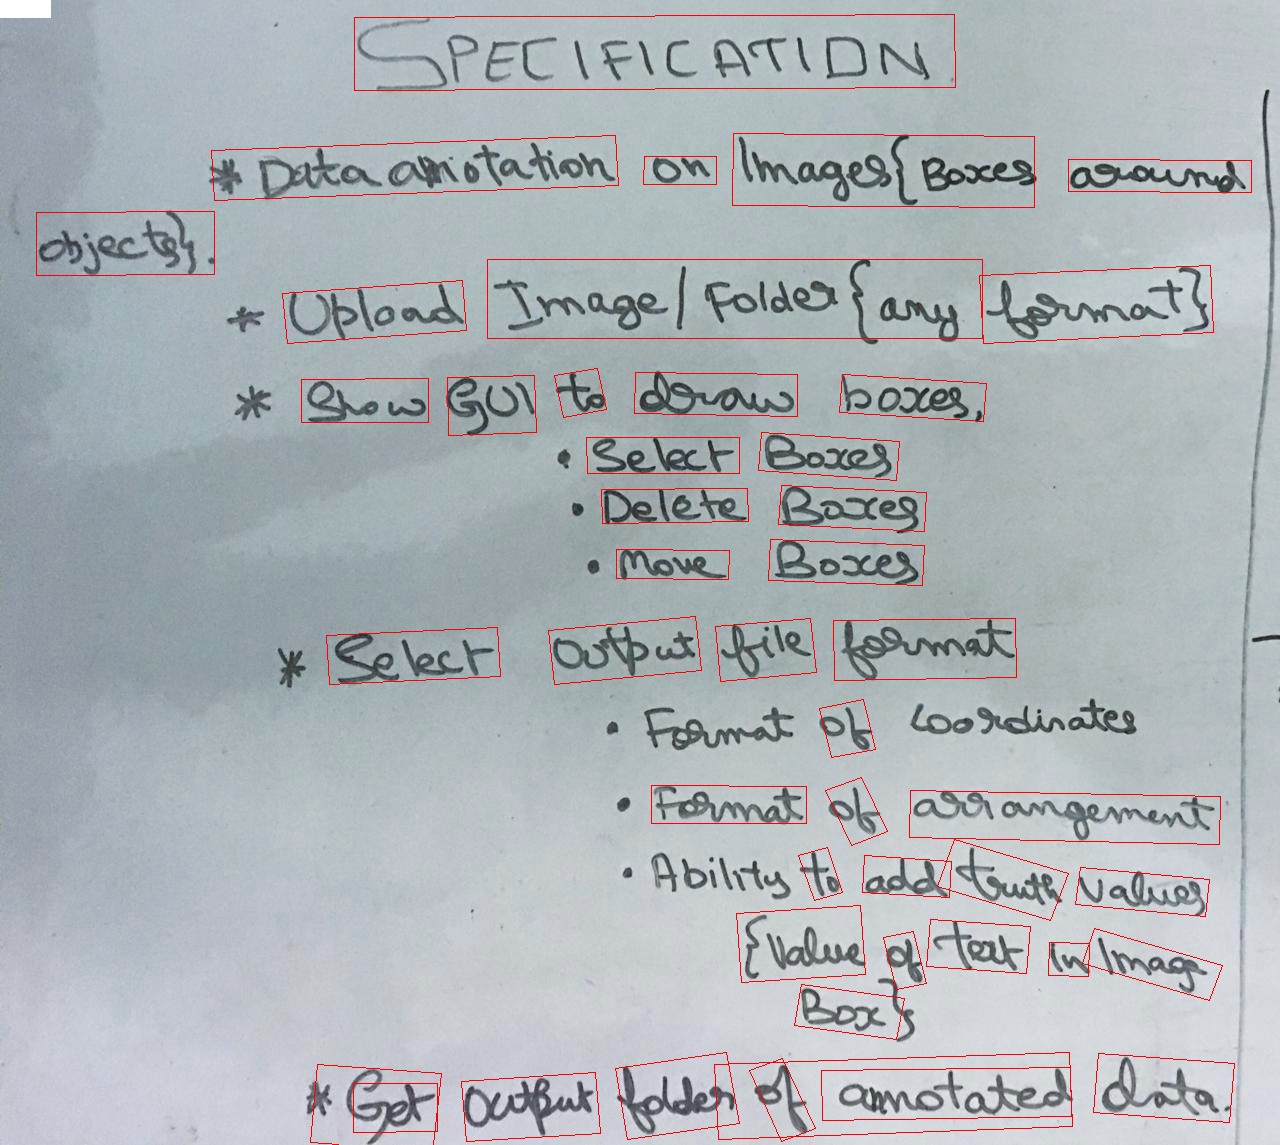 SPECIFICATION
* Data annotation on Images{Boxes around
objects}.
* Upload Image/Folder{any format}
* Show GUI to draw boxes,
• Select Boxes
• Delete Boxes
• Move Boxes
* Select Output file format
• Format of coordinates
• Format of arrangement
• Ability to add truth values
{Value of text in Image
Box}
* Get output folder of annotated data.